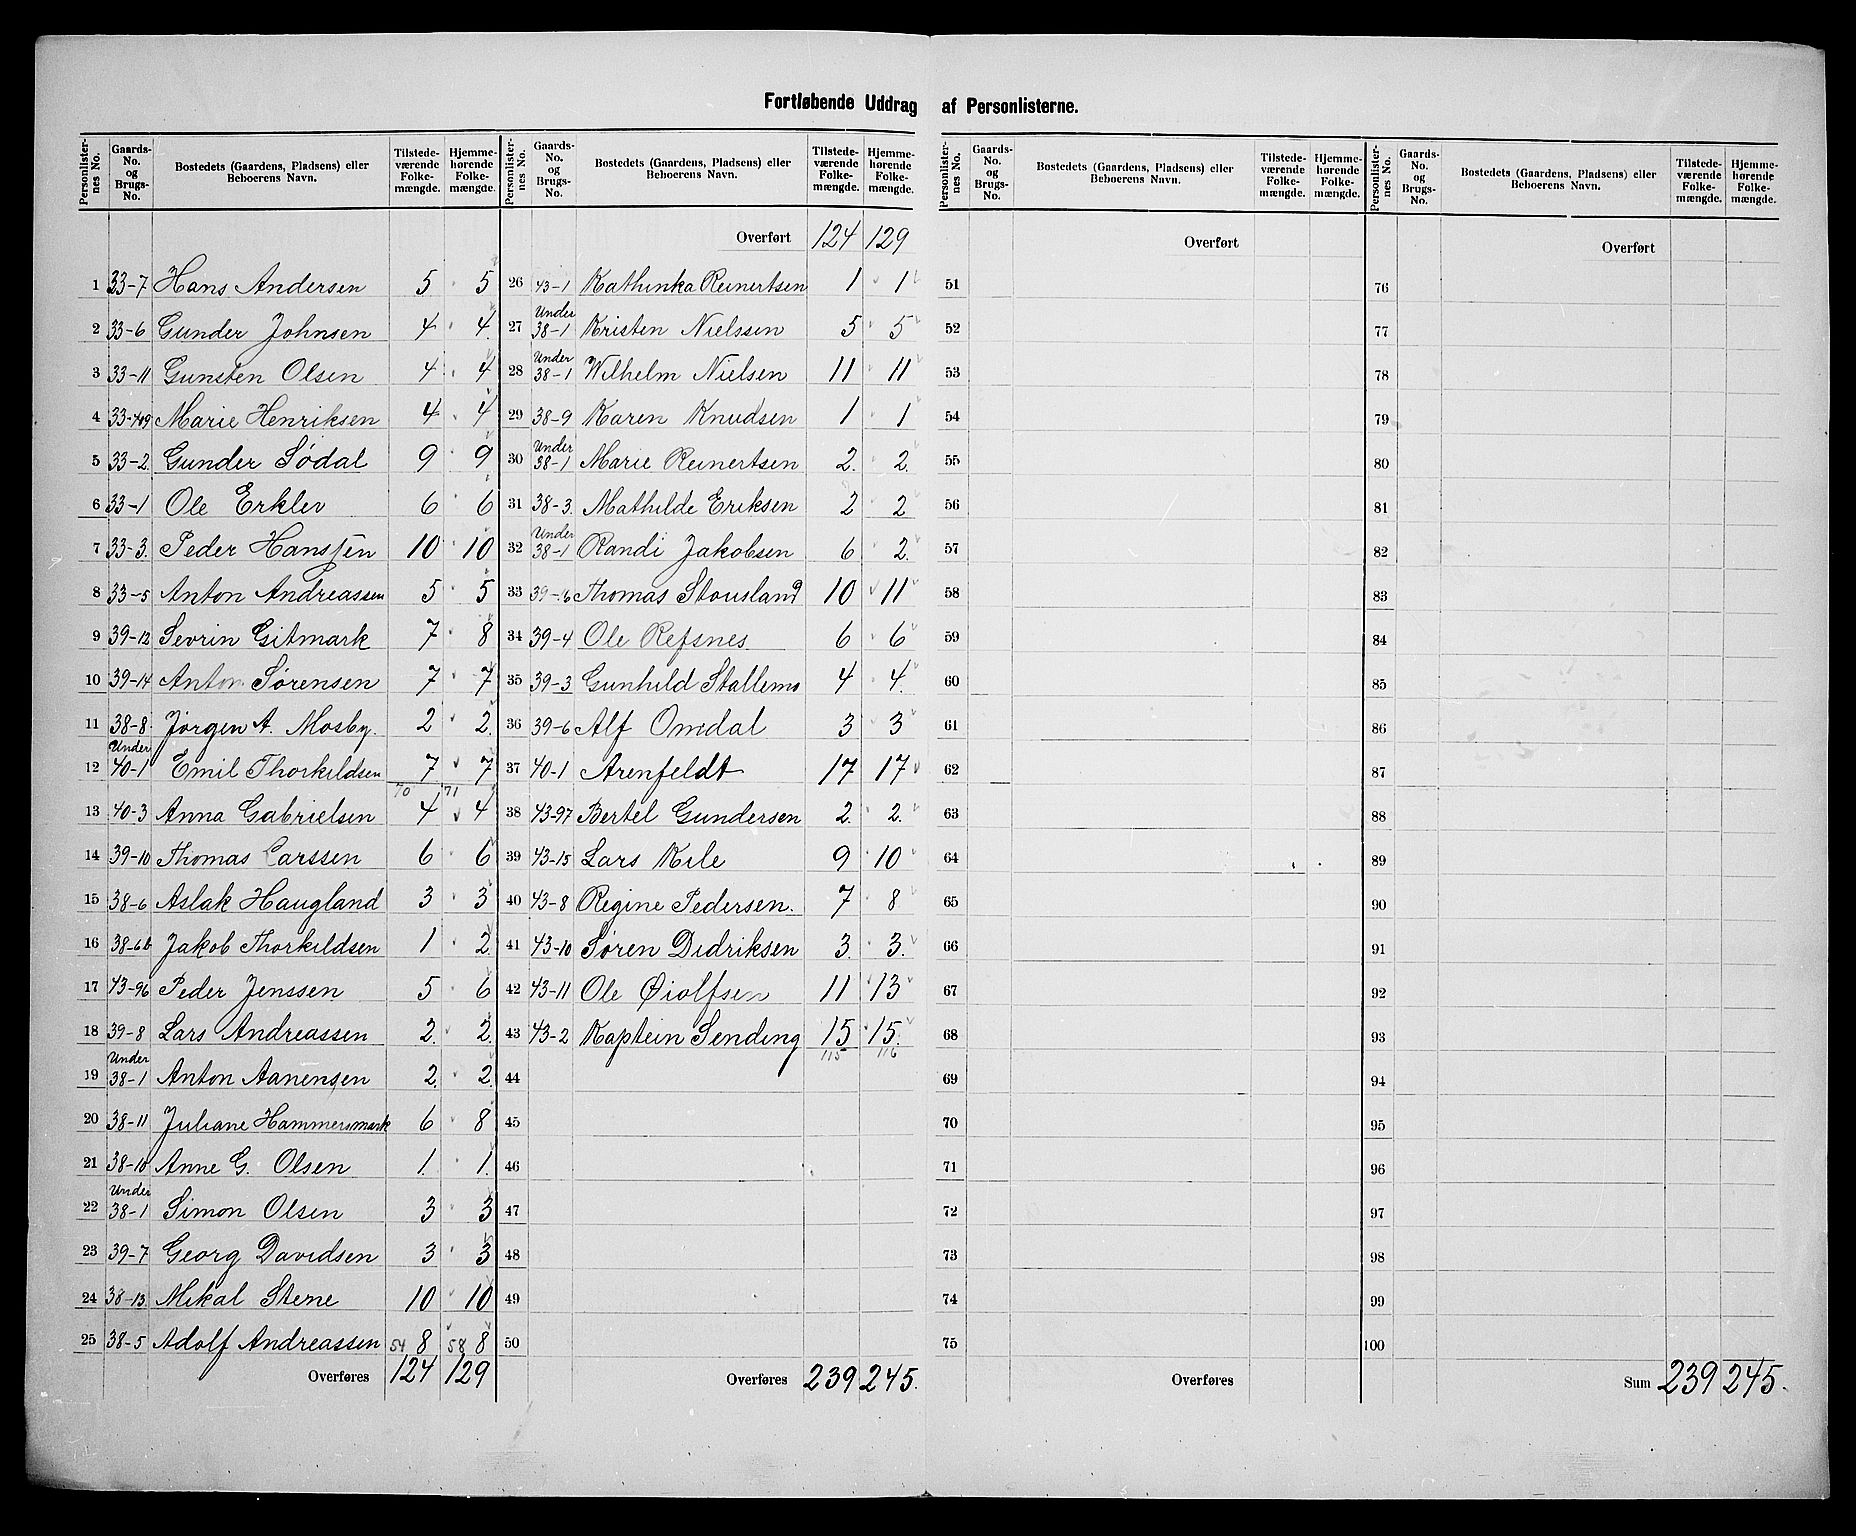 Fortløbende Uddrag af Personlisterne.
Personlisternes No. Gaards-No. og Brugs-No. Bostedets (Gaardens, Pladsens) eller Beboerens Navn. Tilstedeværende Folkemængde. Hjemmehørende Folkemængde.
1 33-7 Hans Andersen 5 5
2 33-6 Gunder Johnsen 4 4
3 33-11 Gunsten Olsen 4 4
4 33-4 Marie Henriksen 4 4
5 33-2 Gunder Sødal 9 9
6 33-1 Ole Erklev 6 6
7 33-3 Peder Hanssen 10 10
8 33-5 Anton Andreassen 5 5
9 39-12 Sevrin Gitmark 7 8
10 39-14 Anton Sørensen 7 7
11 38-8 Jørgen A. Mosby. 2 2
12 Under 40-1 Emil Thorkildsen 7 7
70 71
13 40-3 Anna Gabrielsen 4 4
14 39-10 Thomas Larssen 6 6
15 38-6 Aslak Haugland 3 3
16 38-6b Jakob Thorkildsen 1 2
17 43-96 Peder Jenssen 5 6
18 39-8 Lars Andreassen 2 2
19 Under 38-1 Anton Aanensen 2 2
20 38-11 Juliane Hammersmark 6 8
21 38-10 Anne G. Olsen 1 1
22 Under 38-1 Simon Olsen 3 3
23 39-7 Georg Davidsen 3 3
24 38-13 Mikal Stene 10 10
25 38-5 Adolf Andreassen 54 8 58 8
Overføres 124 129
Personlisternes No. Gaards-No. og Brugs-No. Bostedets (Gaardens, Pladsens) eller Beboerens Navn. Tilstedeværende Folkemængde. Hjemmehørende Folkemængde.
Overført 124 129
26 43-1 Kathinka Reinertsen 1 1
27 Under 38-1 Kristen Nielssen 5 5
28 Under 38-1 Wilhelm Nielsen 11 11
29 38-9 Karen Knudsen 1 1
30 Under 38-1 Marie Reinertsen 2 2
31 38-3 Mathilde Eriksen 2 2
32 Under 38-1 Randi Jakobsen 6 2
33 39-16 Thomas Stousland 10 11
34 39-4 Ole Refsnes 6 6
35 39-3 Gunhild Stallemo 4 4
36 39-6 Alf Omdal 3 3
37 40-1 Arenfeldt 17 17
38 43-97 Bertel Gundersen 2 2
39 43-15 Lars Kile 9 10
40 43-8 Regine Pedersen. 7 8
41 43-10 Søren Didriksen 3 3
42 43-11 Ole Øiolfsen 11 13
43 43-2 Kaptein Sending 15 15
115 116
44
45
46
47
48
49
50
Overføres 239 245.
Personlisternes No. Gaards-No. og Brugs-No. Bostedets (Gaardens, Pladsens) eller Beboerens Navn. Tilstedeværende Folkemængde. Hjemmehørende Folkemængde.
Overført
51
52
53
54
55
56
57
58
59
60
61
62
63
64
65
66
67
68
69
70
71
72
73
74
75
Overføres
Personlisternes No. Gaards-No. og Brugs-No. Bostedets (Gaardens, Pladsens) eller Beboerens Navn. Tilstedeværende Folkemængde. Hjemmehørende Folkemængde.
Overført
76
77
78
79
80
81
82
83
84
85
86
87
88
89
90
91
92
93
94
95
96
97
98
99
100
Sum 239 245.